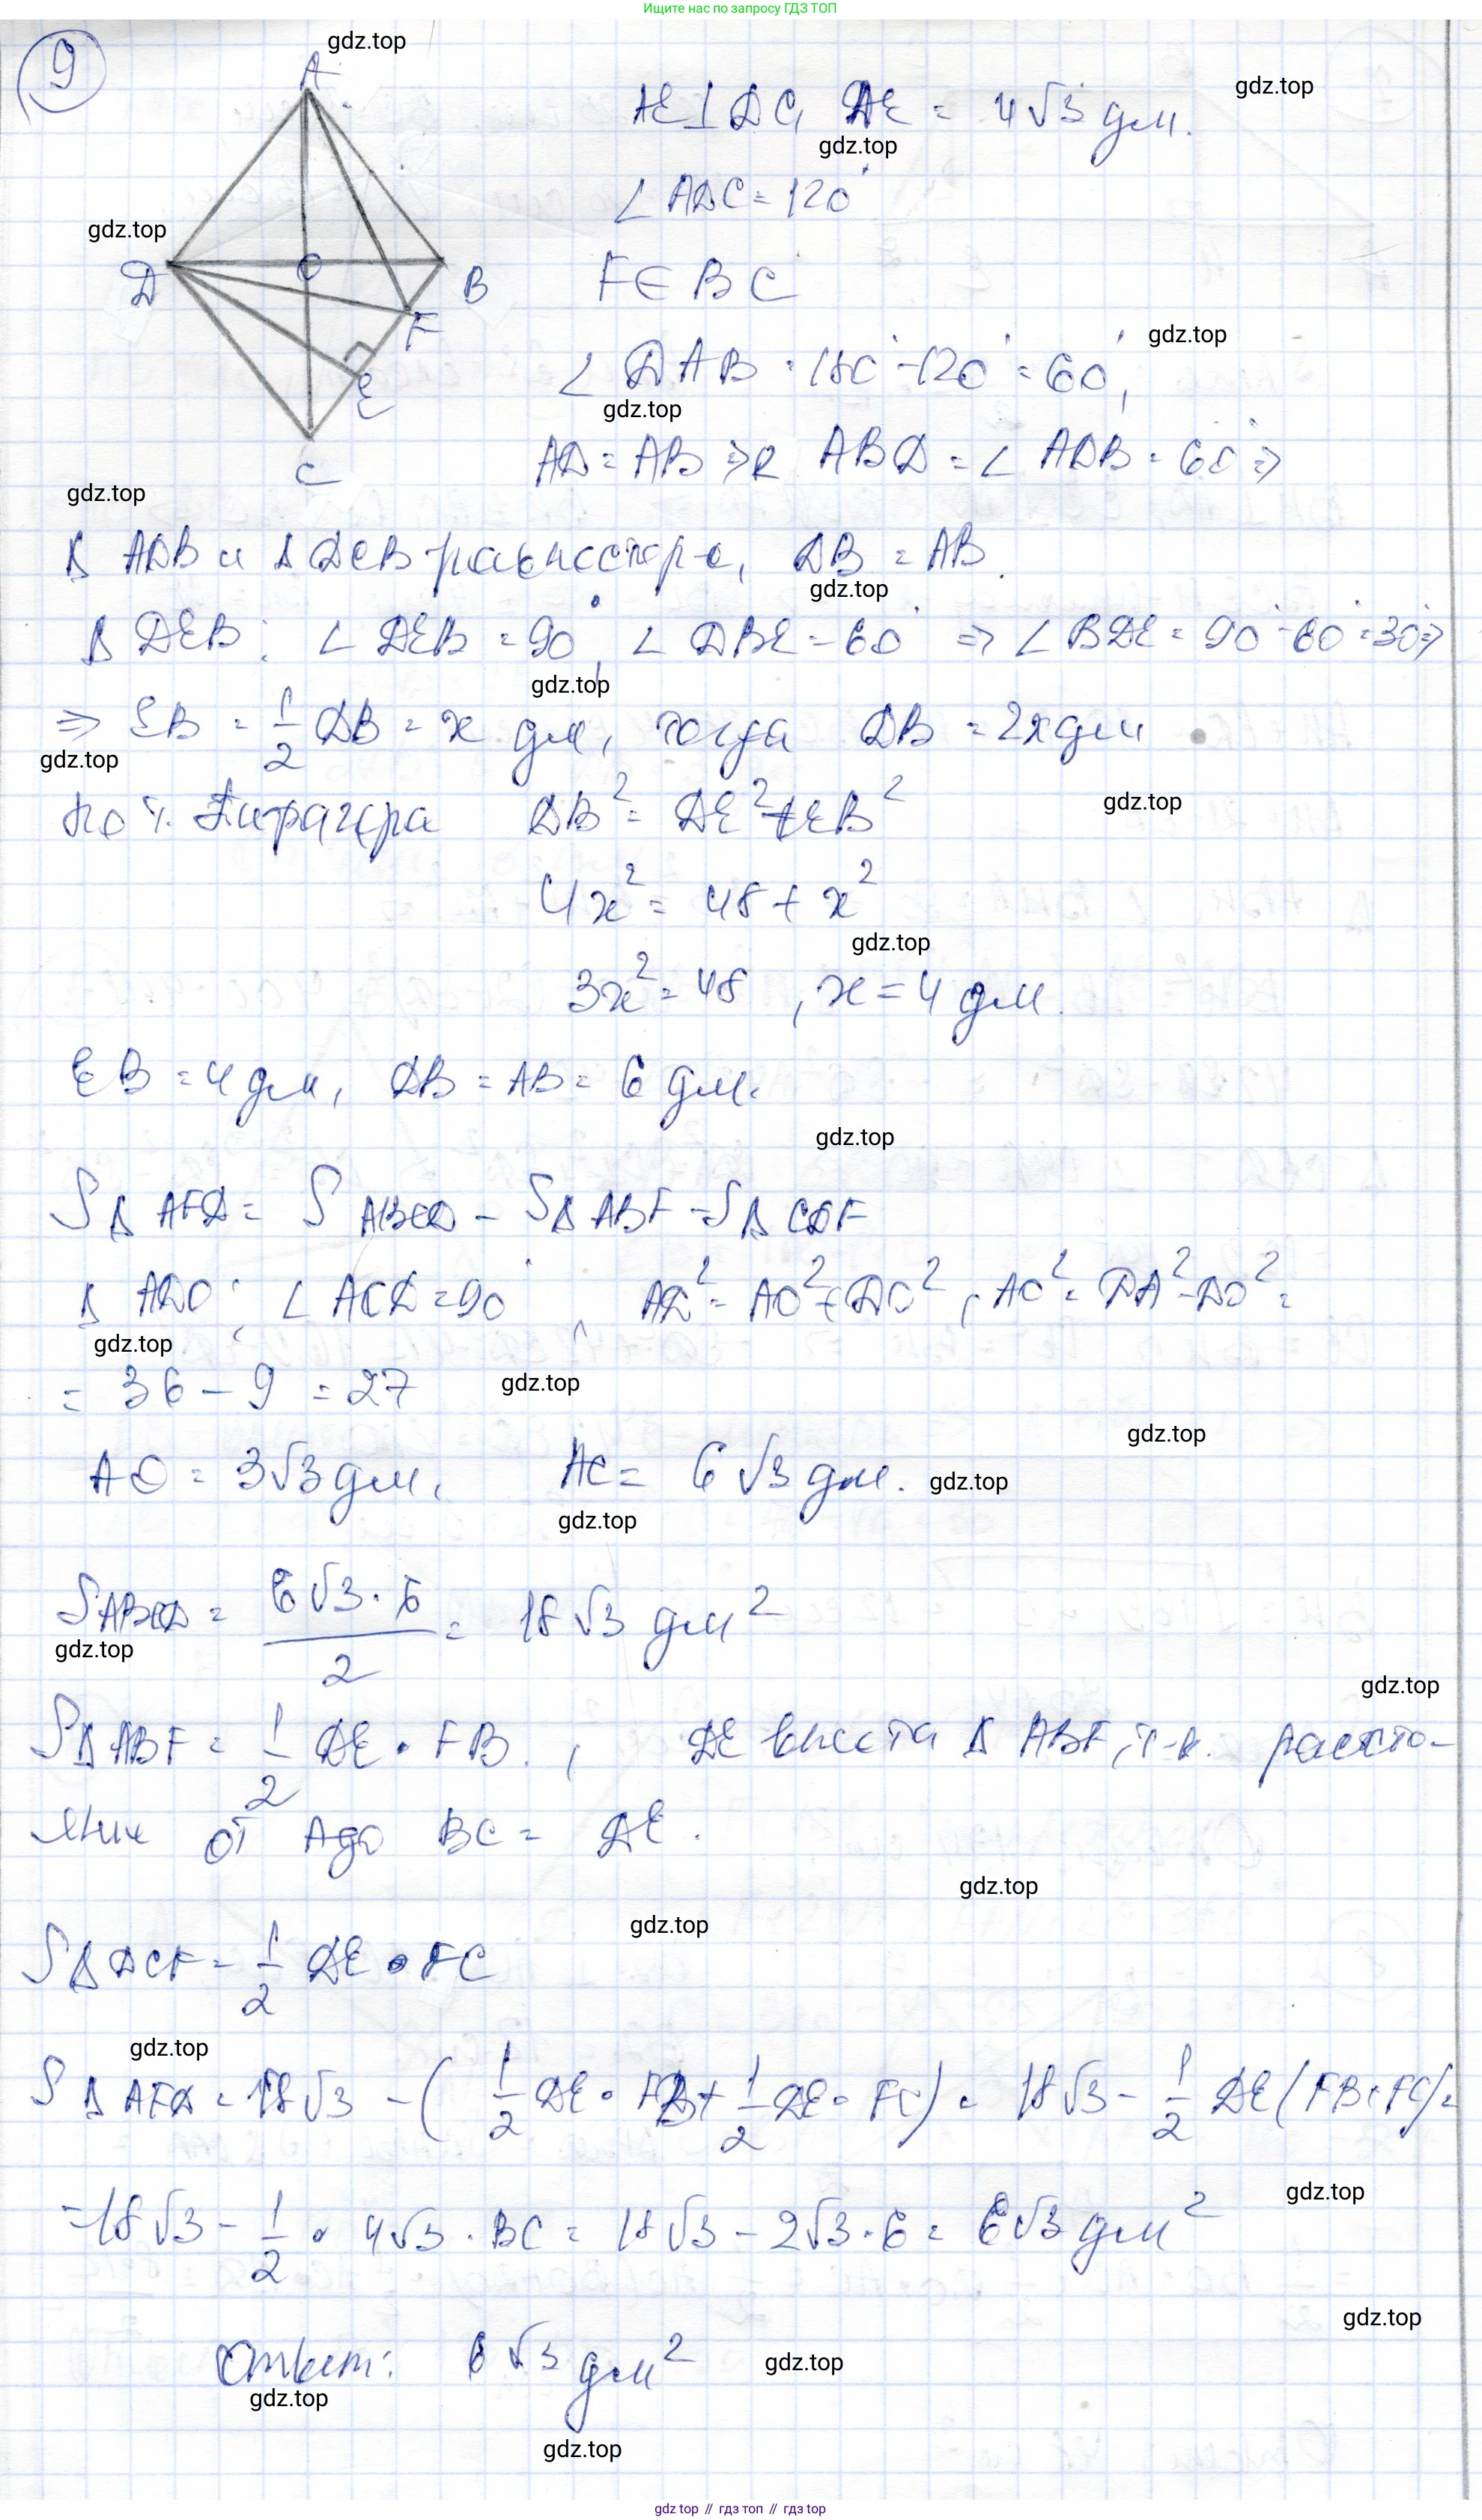 Ищите нас по запросу ГДЗ ТОП
9
gdz.top
A
AE⊥DC, DE = 4√3 дм.
gdz.top
gdz.top
∠ADC = 120°
gdz.top
D O B
F∈BC
F
gdz.top
∠DAB = 180° - 120° = 60°,
E
gdz.top
AD = AB ⇒ ∠ABD = ∠ADB = 60° ⇒
C
gdz.top
Δ ADB и Δ DCB DB = AB.
gdz.top
Δ DEB: ∠DEB = 90°, ∠DBE = 60° ⇒ ∠BDE = 90° - 60° = 30° ⇒
gdz.top
⇒ EB = 1/2 DB = x дм, тогда DB = 2x дм
gdz.top
gdz.top
По т. Пифагора DB² = DE² + EB²
4x² = 48 + x²
gdz.top
3x² = 48, x = 4 дм.
EB = 4 дм, DB = AB = 6 дм.
gdz.top
SΔAFD = SABCD - SΔABF - SΔCDF
Δ ADO: ∠AOD = 90°, AD² = AO² + DO², AO² = DA² - DO² =
gdz.top
= 36 - 9 = 27
gdz.top
gdz.top
AO = 3√3 дм, AC = 6√3 дм.
gdz.top
gdz.top
SABCD = 6√3 · 6 / 2 = 18√3 дм²
gdz.top
gdz.top
SΔABF = 1/2 DE · FB, DE высота Δ ABF, т.к. расстоя-
ние от A до BC = DE.
gdz.top
gdz.top
SΔDCF = 1/2 DE · FC
gdz.top
SΔAFD = 18√3 - (1/2 DE · FB + 1/2 DE · FC) = 18√3 - 1/2 DE (FB + FC) =
gdz.top
= 18√3 - 1/2 · 4√3 · BC = 18√3 - 2√3 · 6 = 6√3 дм²
gdz.top
Ответ: 6√3 дм²
gdz.top
gdz.top
gdz.top
gdz top // гдз топ // гдз top